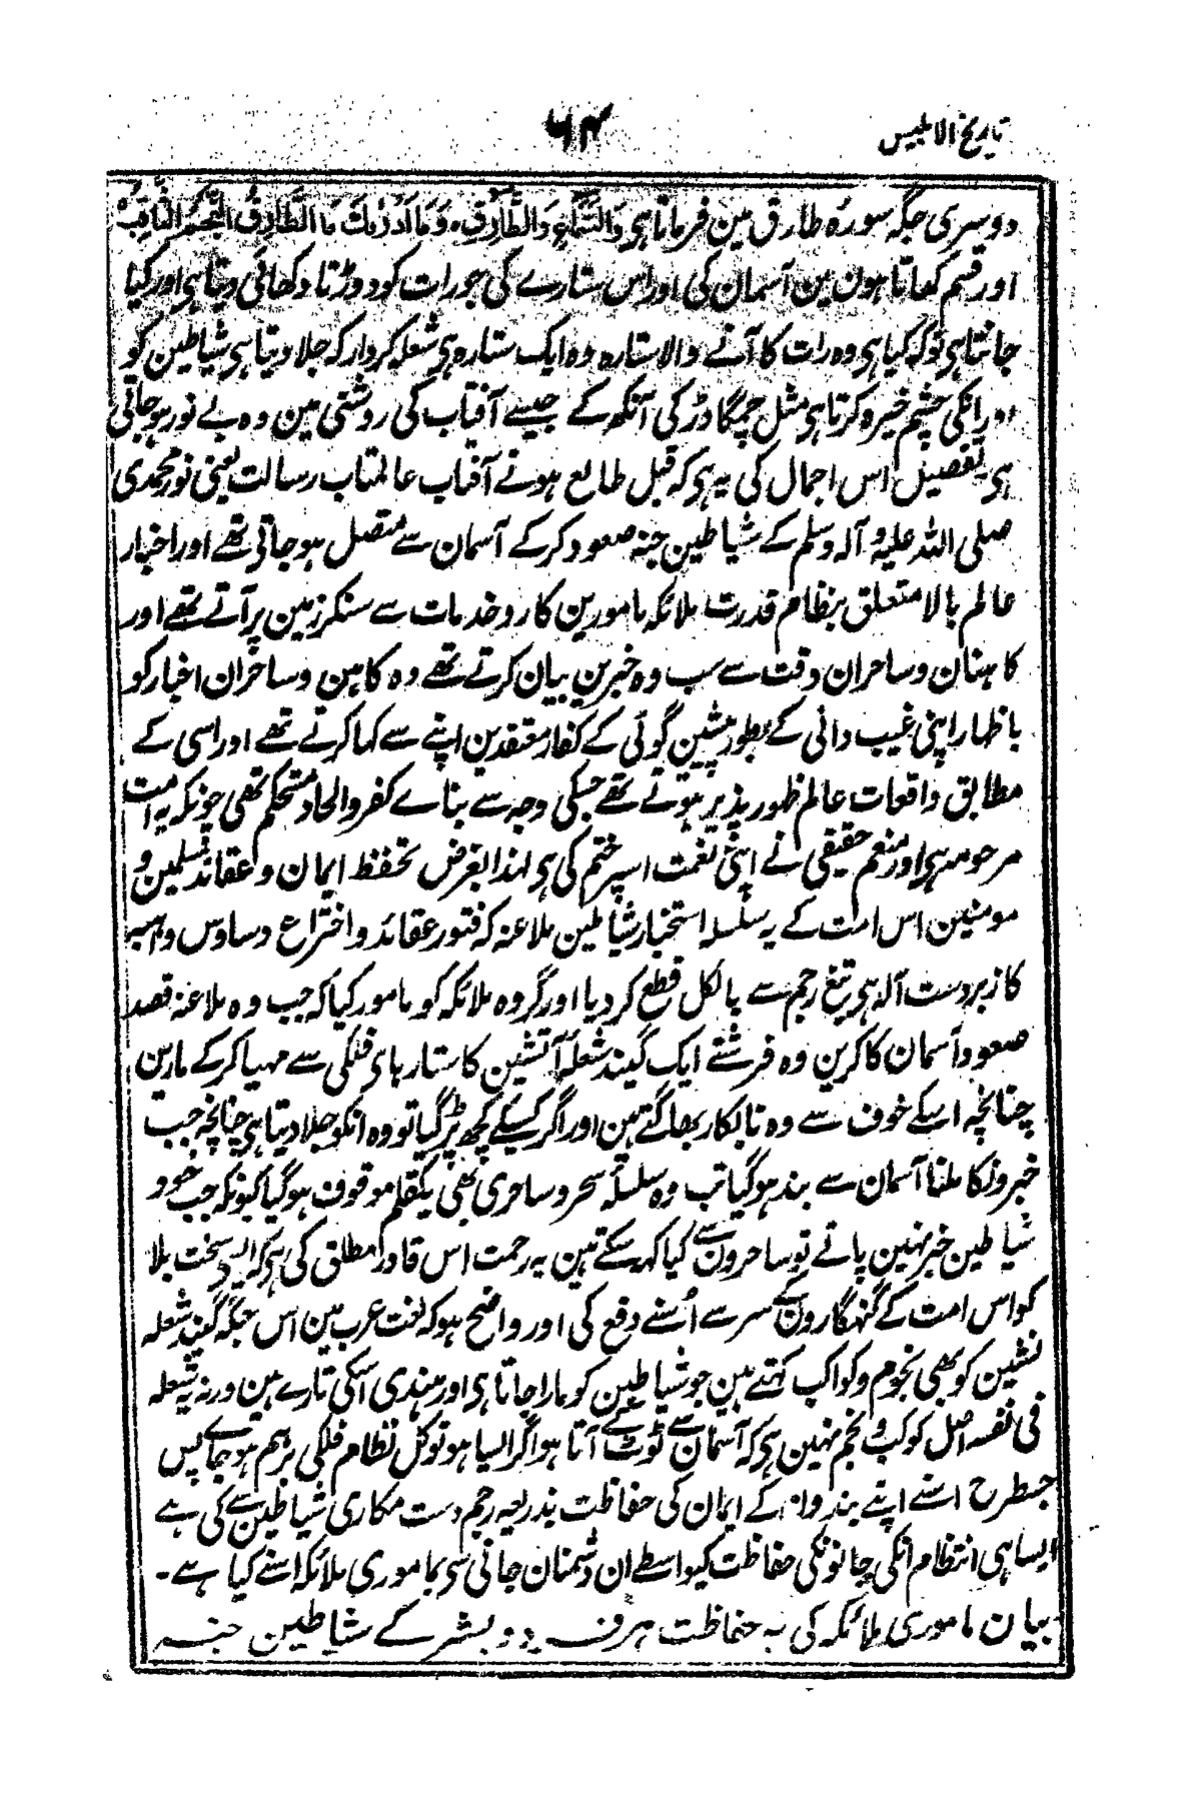 تاریخ الابلیس
۶۴
دوسری جگہ سورۂ طارق مین فرماتا ہی وَالسَّمَاءِ وَالطَّارِقِ۔ وَمَا اَدْرٰىكَ مَا الطَّارِقُ النَّجْمُ الثَّاقِبُ
اور قسم کھاتا ہون مین آسمان کی اور اس ستارے کی جو رات کو دوڑتا دکھائی دیتا ہی اور کیا
جانتا ہی تو کہ کیا ہی وہ رات کا آنے والا ستارہ وہ ایک ستارہ ہی شعلہ کردار کہ جلا دیتا ہی شیاطین کو
اور انکی چشم خیرہ کرتا ہی مثل چمگادڑ کی آنکھ کے جیسے آفتاب کی روشنی مین وہ بے نور ہو جاتی
ہی تفصیل اس اجمال کی یہ ہی کہ قبل طالع ہونے آفتاب عالمتاب رسالت یعنی نور محمدی
صلی اللہ علیہ و آلہ وسلم کے شیاطین جنہ صعود کرکے آسمان سے متصل ہو جاتی تھے اور اخبار
عالم بالا متعلق بنظام قدرت ملائکہ مامورین کار و خدمات سے سنکر زمین پر آتے تھے اور
کاہنان و ساحران وقت سے سب وہ خبرین بیان کرتے تھے وہ کاہین و ساحران اخبار کو
باظہار اپنی غیب دانی کے بطور پیشین گوئی کے کفار معتقدین اپنے سے کہا کرتے تھے اور اسی کے
مطابق واقعات عالم ظہور پذیر ہوتے تھے جسکی وجہ سے بناے کفر و الحاد مستحکم تھی چونکہ یہ امت
مرحومہ ہی اور منعم حقیقی نے اپنی نعمت اسپر ختم کی ہی لہذا بغرض تحفظ ایمان و عقائد مسلمین و
مومنین اس امت کے یہ سلسلہ استخبار شیاطین ملاعنہ کہ فتور عقائد و اختراع وساوس واہیہ
کا زبردست آلہ ہی تیغ رجم سے بالکل قطع کردیا اور گروہ ملائکہ کو مامور کیا کہ جب وہ ملاعنہ قصد
صعود آسمان کا کرین وہ فرشتے ایک گیند شعلۂ آتشین کا ستارہای فلکی سے مہیا کرکے مارین
چنانچہ اسکے خوف سے وہ نابکار بھاگتے ہین اور اگر کسیکے کچھ پڑ گیا تو وہ انکو جلا دیتا ہی چنانچہ جب
خبرونکا ملنا آسمان سے بند ہو گیا تب وہ سلسلۂ سحر و ساحری بھی یکقلم موقوف ہو گیا کیونکہ جب خود
شیاطین خبر نہین پاتے تو ساحرون سے کیا کہہ سکتے ہین یہ رحمت اس قادر مطلق کی ہی کہ ایسی سخت بلا
کو اس امت کے گنہگارون کے سر سے اُسنے دفع کی اور واضح ہو کہ لغت عرب مین اس جگہ گیند شعلہ
نشین کو بھی نجوم و کواکب کہتے ہین جو شیاطین کو مارا جاتا ہی اور ہندی اسکی تارے ہین ورنہ یہ شعلہ
فی نفسہ اصل کوکب و نجم نہین ہی کہ آسمان سے ٹوٹ کے آتا ہو اگر ایسا ہو تو کل نظام فلکی برہم ہو جاے پس
جسطرح اسنے اپنے بندوں کے ایمان کی حفاظت بذریعہ رجم دست مکاری شیاطین سے کی ہے
ایسا ہی انتظام انکی جانونکی حفاظت کیواسطے ان دشمنان جانی سی بماموری ملائکہ اسنے کیا ہے۔
بیان ماموری ملائکہ کی بہ حفاظت ہر فرد بشر کے شیاطین جنہ